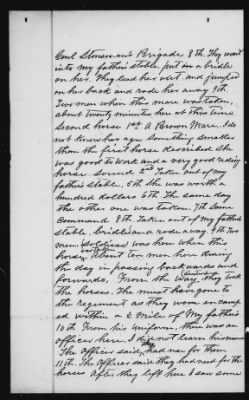 Genl Stoneman's Brigade 8th. They went
into my father's stable, put on a bridle
on her. They lead her out and jumped
on her back and rode her away 9th.
Two men when this mare was taken,
about twenty minutes her at this time
Second horse 1st. A Brown Mare. I do
not know her age. Something smaller
than the first horse described She
was good to work and a very good riding
horse sound 3rd Taken out of my
father's stable. 5th She was worth a
hundred dollars 6th The same day
the other one was taken. 7th Same
Command 8th Taken out of my father's
stable, bridled and rode away. 9th Two
men (soldiers) was here when this
horse. About ten men here thru
the day in passing backwards and
forwards. From the way, they took
the horses. The must have gone to
the regiment as they were encamp
ed within a ½ Mile of My father's
10th From his Uniform, there was an
officer here. I did not learn his name
The Officers said, had use for them
11th. The Officers said they had need for the
horses After they left here I saw some